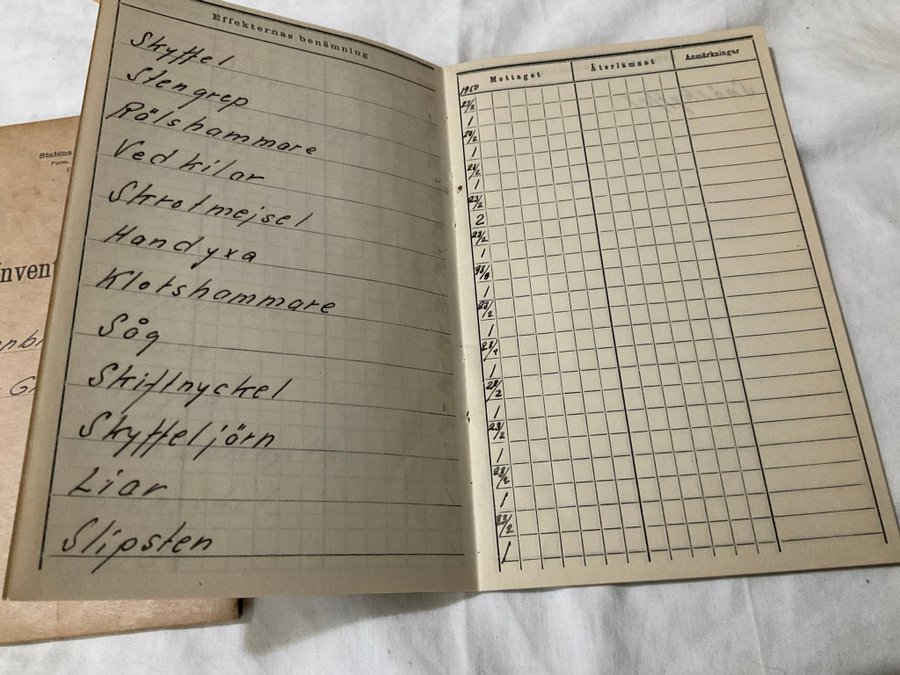 Statens
Form.
Inven
Effekternas benämning
Skyffel
Stengrep
Rälshammare
Vedkilar
Skrotmejsel
Handyxa
Klotshammare
Såg
Skiftnyckel
Skyffeljörn
Liar
Slipsten
Mottaget Återlämnat Anmärkningar
1950
23/2
1
23/2
1
23/2
1
23/2
2
23/2
1
1
23/2
1
1
23/2
1
23/2
1
23/2
1
23/2
1